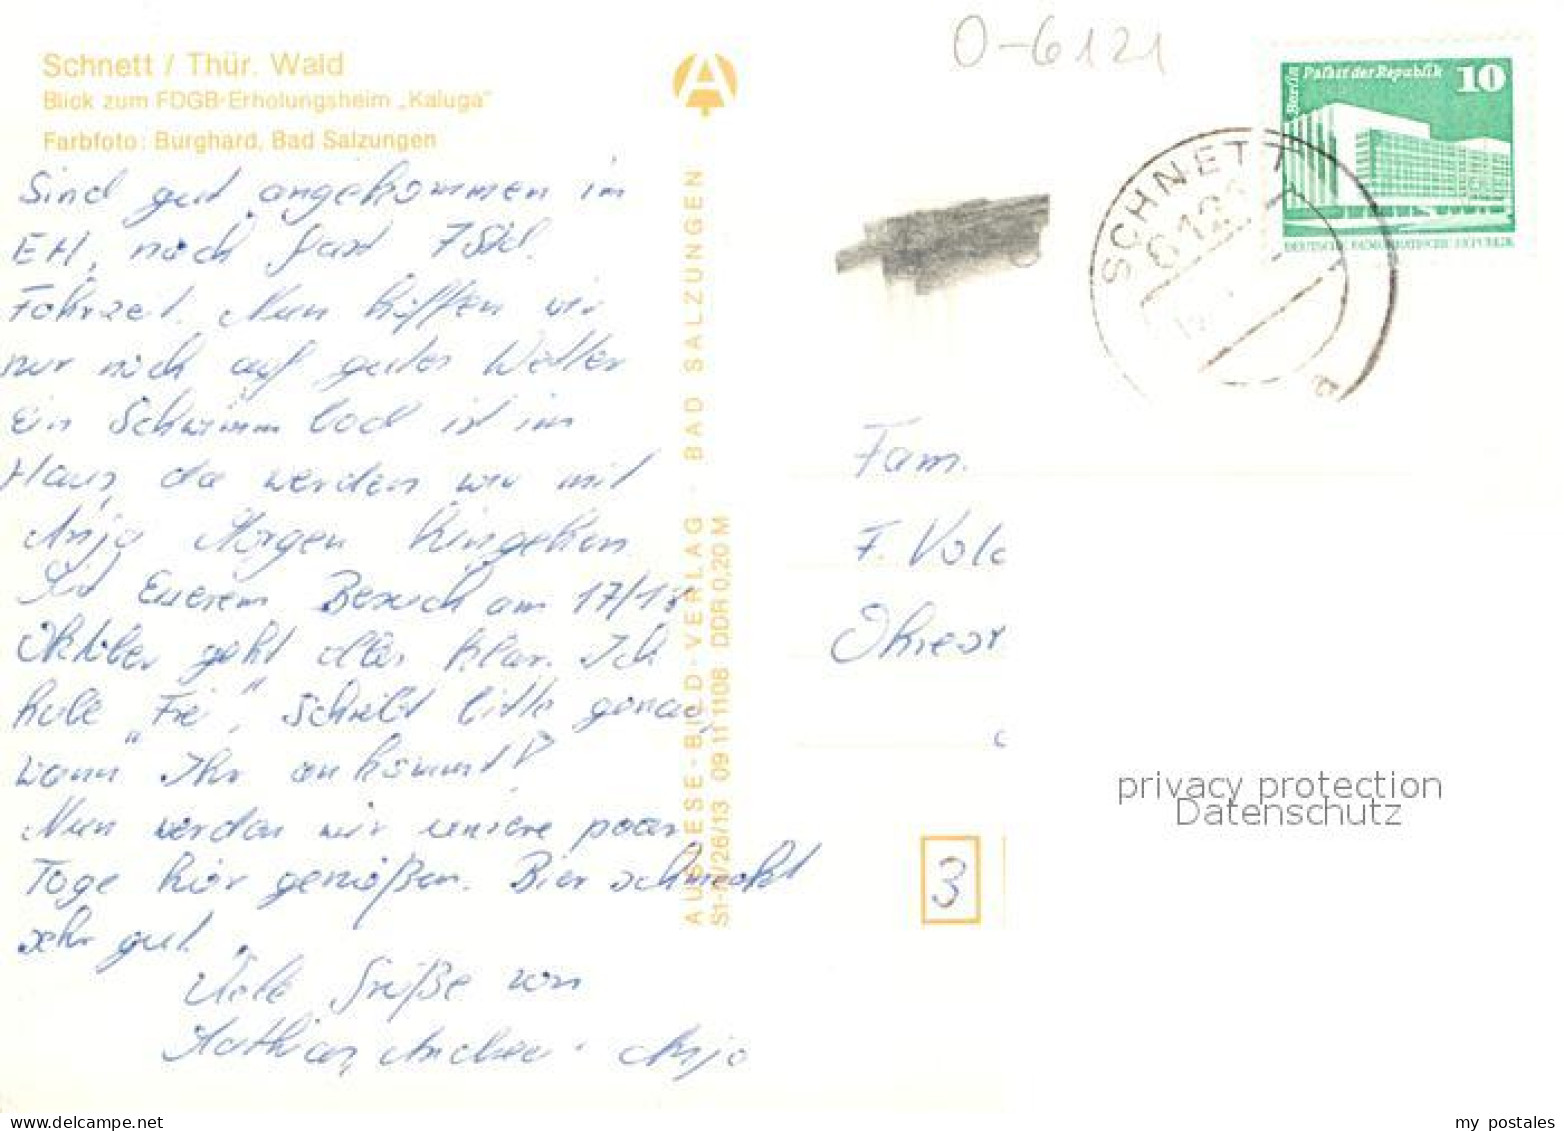 Schnett / Thür. Wald
Blick zum FDGB-Erholungsheim „Kaluga"
Farbfoto: Burghard, Bad Salzungen
Sind gut angekommen im
EH, nach fast 7 Std.
Fahrzeit. Nun hoffen wir
nur noch auf gutes Wetter
Ein Schwimmbad ist im
Haus, da werden wir mit
Anja Morgen hingehen
Mit Euerem Besuch am 17/18
Oktober geht alles klar. Ich
habe „Frei", schreibt bitte genau,
wann Ihr ankommt!
Nun werden wir unsere paar
Tage hier genießen. Bier schmeckt
sehr gut.
Viele Grüße von
Mathias, Andrea. Anja
AUSLESE-BILD-VERLAG · BAD SALZUNGEN
/26/13 09 11 1108 DDR 0,20 M
O-6121
Berlin Palast der Republik 10
DEUTSCHE DEMOKRATISCHE REPUBLIK
SCHNETT
612
a
Fam.
F. Vol
3
privacy protection
Datenschutz
my postales